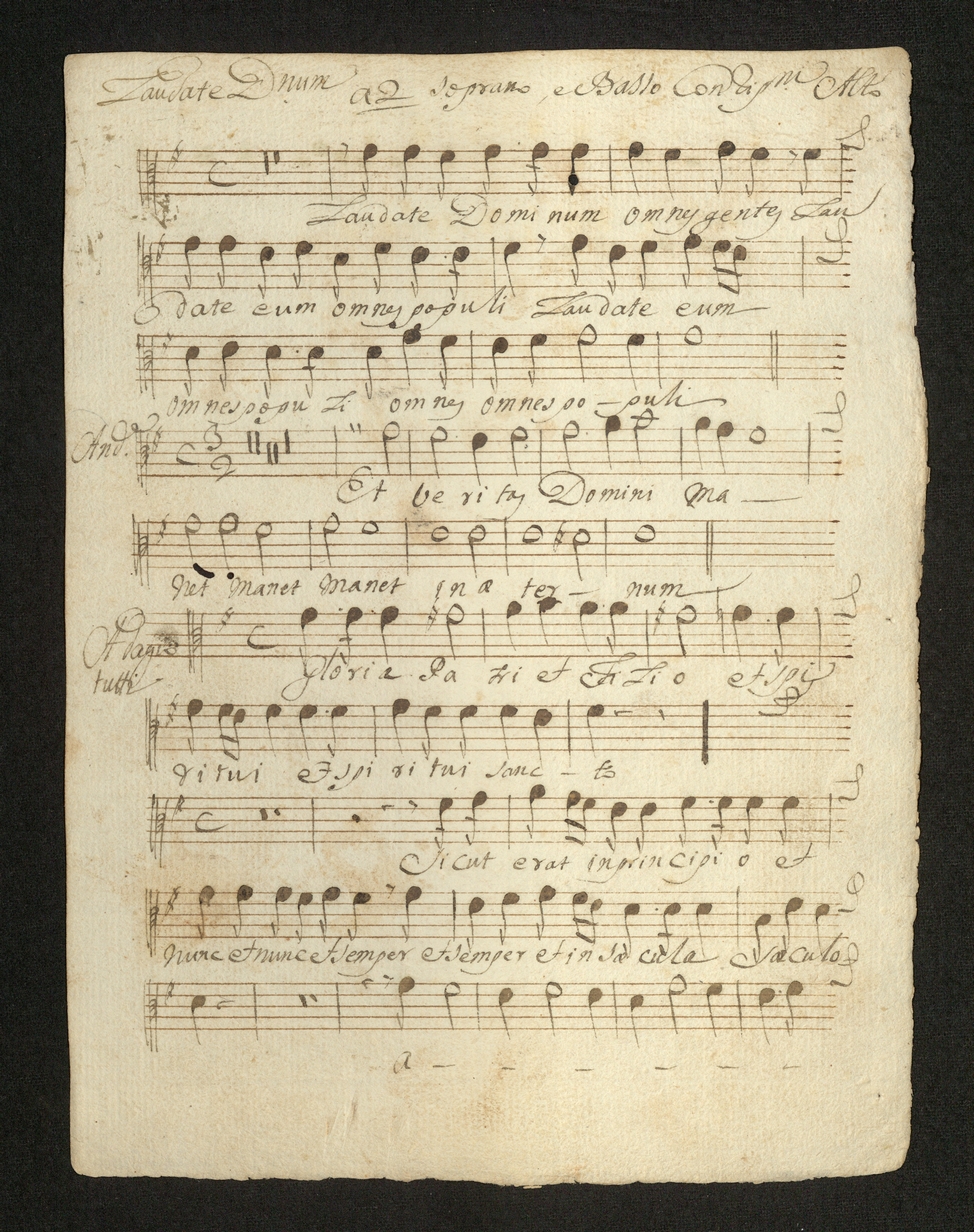 Laudate Dnum a2 Soprano, e Basso Con Rip.ni Alto
Laudate Dominum omnes gentes Lau
date eum omnes populi Laudate eum
omnes popu li omnes omnes po - puli
And.e
3
2
Et veritas Domini Ma
net Manet Manet in æ ter - num
Adagio
tutti
Gloria Pa tri et Filio et Spi
ritui et Spi ritui Sanc - to
Sicut erat in principi o et
nunc et nunc et semper et semper et in sæ cula sæculo
a - - - - - -